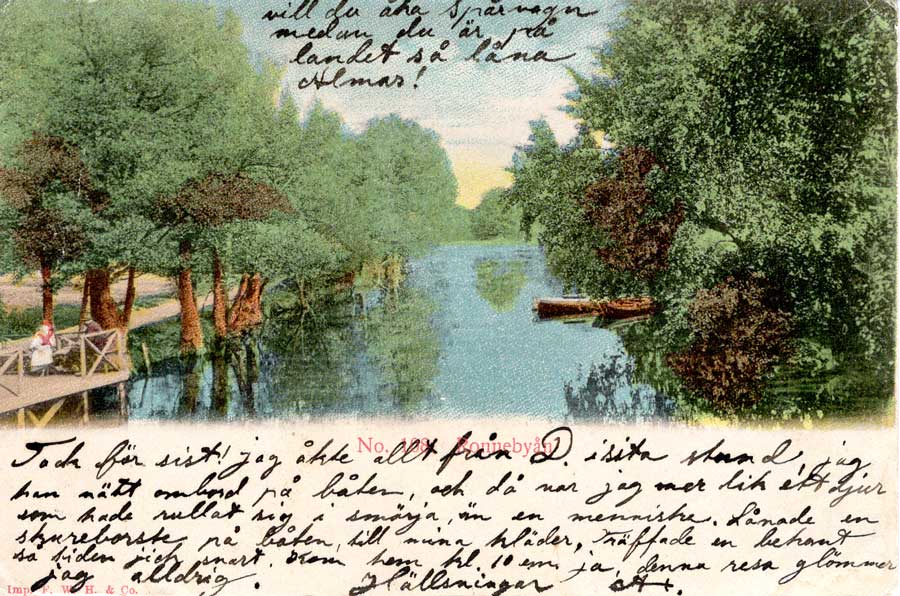 vill du åka spårvagn
medan du är på
landet så låna
Almas!
No. 108. Ronnebyån.
Tack för sist! jag åkte allt från D. i sista stund, jag
han nätt ombord på båten, och då var jag mer lik ett djur
som hade rullat sig i smörja, än en menniska. Lånade en
skureborste på båten, till mina kläder, träffade en bekant
så tiden gick snart. kom hem kl. 10 em, ja, denna resa glömmer
jag aldrig. Hällsningar A.
Imp. F. W. H. & Co.